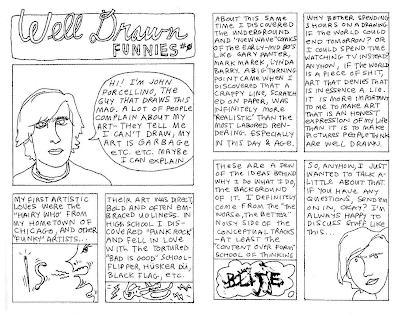 Well Drawn
FUNNIES #0
HI! I'M JOHN
PORCELLINO, THE
GUY THAT DRAWS THIS
MAG. A LOT OF PEOPLE
COMPLAIN ABOUT MY
ART - THEY TELL ME
I CAN'T DRAW, MY
ART IS GARBAGE
ETC. ETC. MAYBE
I CAN EXPLAIN.
MY FIRST ARTISTIC
LOVES WERE THE
"HAIRY WHO" FROM
MY HOMETOWN OF
CHICAGO, AND OTHER
"FUNKY" ARTISTS...
THEIR ART WAS DIRECT,
BOLD AND OFTEN EM-
BRACED UGLINESS. IN
HIGH SCHOOL I DIS-
COVERED "PUNK ROCK"
AND FELL IN LOVE
W/ITH. THE TORTURED
"BAD IS GOOD" SCHOOL-
FLIPPER, HUSKER DÜ,
BLACK FLAG, ETC.
ABOUT THIS SAME
TIME I DISCOVERED
THE UNDERGROUND
AND "NEW WAVE" COMIX
OF THE EARLY-MID 80'S
LIKE GARY PANTER,
MARK MAREK, LYNDA
BARRY. A BIG TURNING
POINT CAME WHEN I
DISCOVERED THAT A
CRAPPY LINE, SCRATCH-
ED ON PAPER, WAS
DEFINITELY MORE
"REALISTIC" THAN THE
MOST LABORED REN-
DERING. ESPECIALLY
IN THIS DAY & AGE.
WHY BOTHER SPENDING
3 HOURS ON A DRAWING
IF THE WORLD COULD
END TOMORROW? OR
I COULD SPEND TIME
WATCHING TV INSTEAD?
ANYHOW, IF THE WORLD
IS A PIECE OF SHIT,
ART THAT DENIES THAT
IS IN ESSENCE A LIE.
IT IS MORE IMPORTANT
TO ME TO MAKE ART
THAT IS AN HONEST
EXPRESSION OF MY LIFE
THAN IT IS TO MAKE
PICTURES PEOPLE THINK
ARE WELL DRAWN.
THESE ARE A FEW
OF THE IDEAS BEHIND
WHY I DO WHAT I DO,
THE BACKGROUND
OF IT. I DEFINITELY
COME FROM THE "THE
WORSE, THE BETTER"
NOISY SIDE OF THE
CONCEPTUAL TRACKS
-AT LEAST THE
"CONTENT OVER FORM"
SCHOOL OF THINKING
SO, ANYHOW, I JUST
WANTED TO TALK A
LITTLE ABOUT THAT.
IF YOU HAVE ANY
QUESTIONS, SEND 'EM
ON IN, OKAY? I'M
ALWAYS HAPPY TO
DISCUSS STUFF LIKE
THIS...